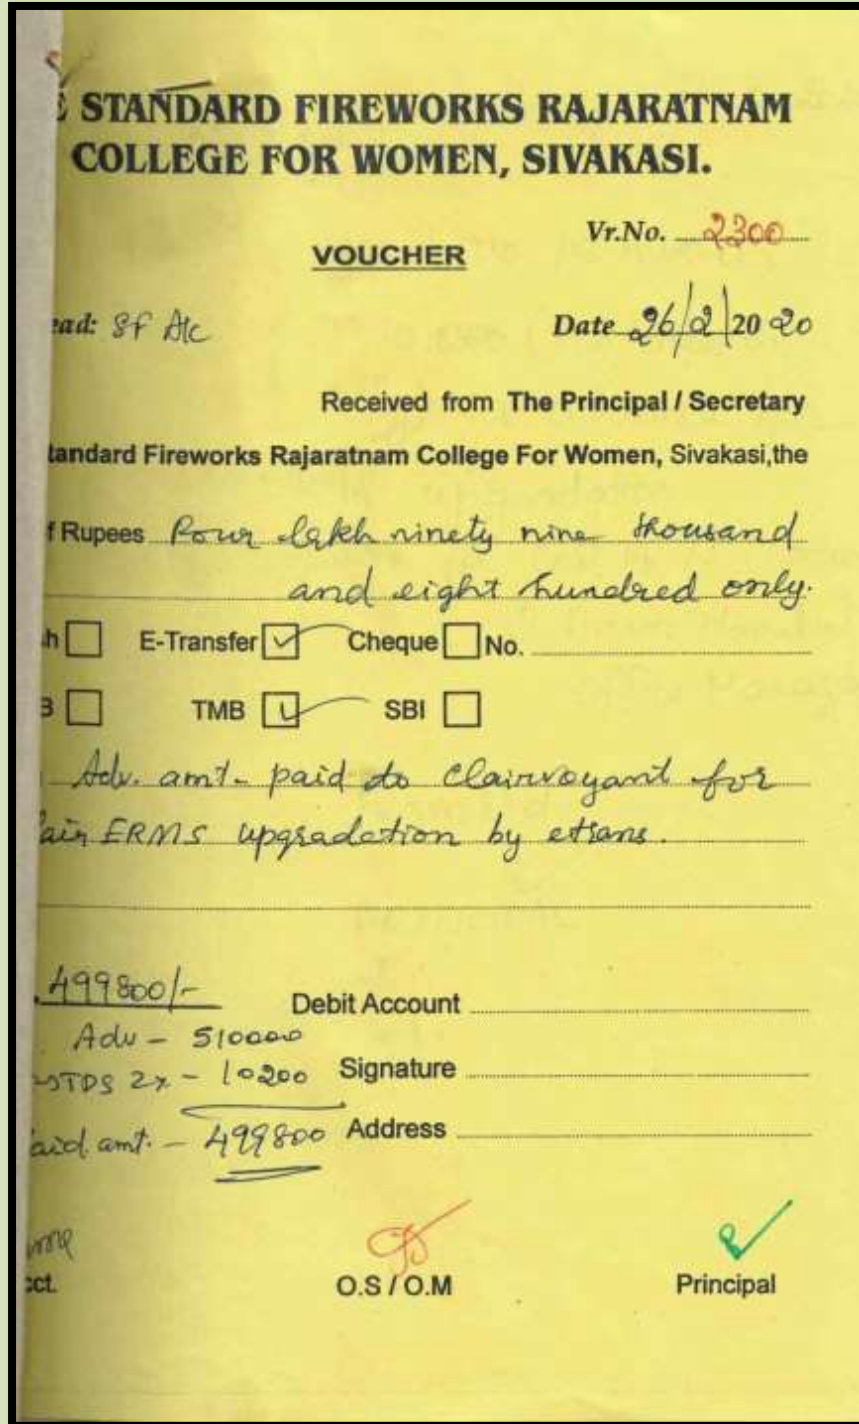 E STANDARD FIREWORKS RAJARATNAM
COLLEGE FOR WOMEN, SIVAKASI.
Vr.No. 2300
VOUCHER
ead: SF A/c Date 26/2/2020
Received from The Principal / Secretary
tandard Fireworks Rajaratnam College For Women, Sivakasi,the
f Rupees Four lakh ninety nine thousand
and eight hundred only.
h E-Transfer Cheque No.
B TMB SBI
Adv. amt- paid to Clairvoyant for
ERMS upgradation by etrans.
499800/- Debit Account
Adv - 510000
TDS 2% - 10200 Signature
aid amt. - 499800 Address
cct. O.S / O.M Principal